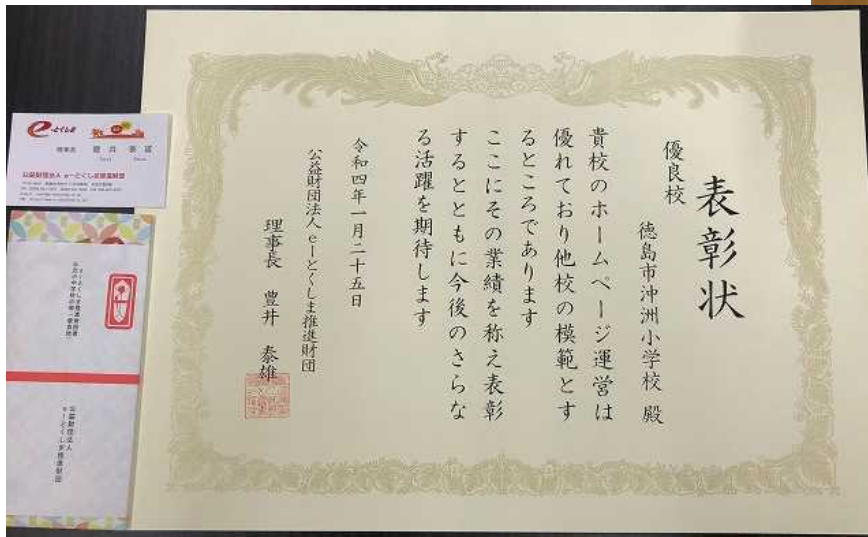 表彰状
優良校
徳島市沖洲小学校 殿
貴校のホームページ運営は
優れており他校の模範とす
るところであります
ここにその業績を称え表彰
するとともに今後のさらな
る活躍を期待します
令和四年一月二十五日
公益財団法人 eーとくしま推進財団
理事長 豊井 泰雄
e-とくしま
理事長 豊井 泰雄
公益財団法人 eーとくしま推進財団
公益財団法人
eーとくしま推進財団